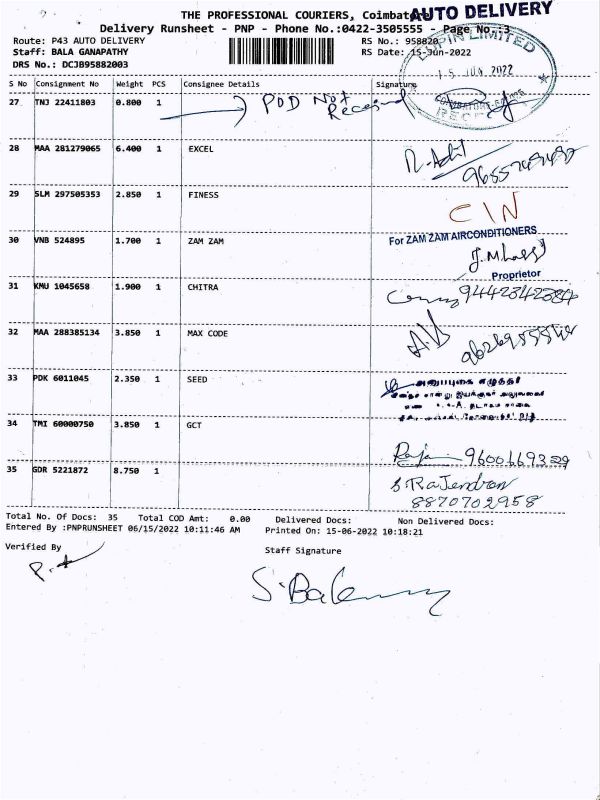 THE PROFESSIONAL COURIERS, Coimbatore
AUTO DELIVERY
Delivery Runsheet - PNP - Phone No.:0422-3505555 - Page No.:3
Route: P43 AUTO DELIVERY RS No.: 958820
Staff: BALA GANAPATHY RS Date: 15-Jun-2022
DRS No.: DCJB95882003
LUPIN LIMITED
15 JUN 2022
S No Consignment No Weight PCS Consignee Details Signature
27 TNJ 22411803 0.800 1 POD Not Received
28 MAA 281279065 6.400 1 EXCEL
29 SLM 297505353 2.850 1 FINESS
30 VNB 524895 1.700 1 ZAM ZAM
For ZAM ZAM AIRCONDITIONERS
Proprietor
31 KMU 1045658 1.900 1 CHITRA
32 MAA 288385134 3.850 1 MAX CODE
33 PDK 6011045 2.350 1 SEED
34 TMI 60000750 3.850 1 GCT
Raja
35 GDR 5221872 8.750 1
S RaJendran
8870702958
Total No. Of Docs: 35 Total COD Amt: 0.00 Delivered Docs: Non Delivered Docs:
Entered By :PNPRUNSHEET 06/15/2022 10:11:46 AM Printed On: 15-06-2022 10:18:21
Verified By
Staff Signature